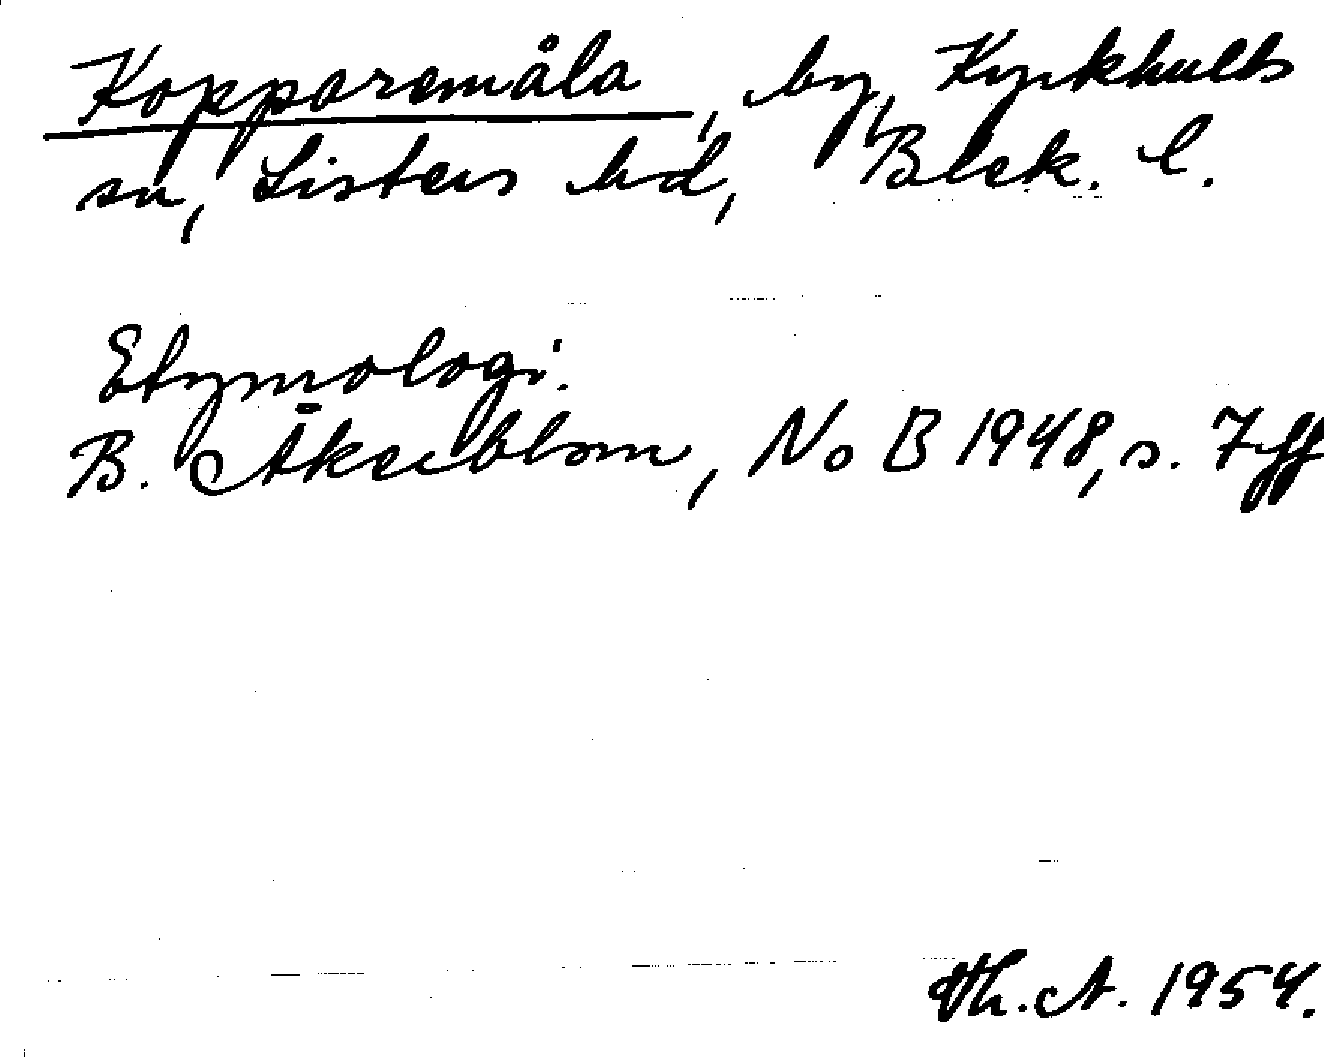 Kopparemåla, by, Kyrkhults
sn, Listers hd, Blek. l.
Etymologi.
B. Åkerblom, NoB 1948, s. 7 ff
Th. A. 1954.